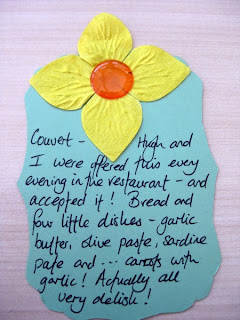 Couvert - Hugh and
I were offered this every
evening in the restaurant - and
accepted it! Bread and
four little dishes - garlic
butter, olive paste, sardine
pate and --- carrots with
garlic! Actually all
very delish!